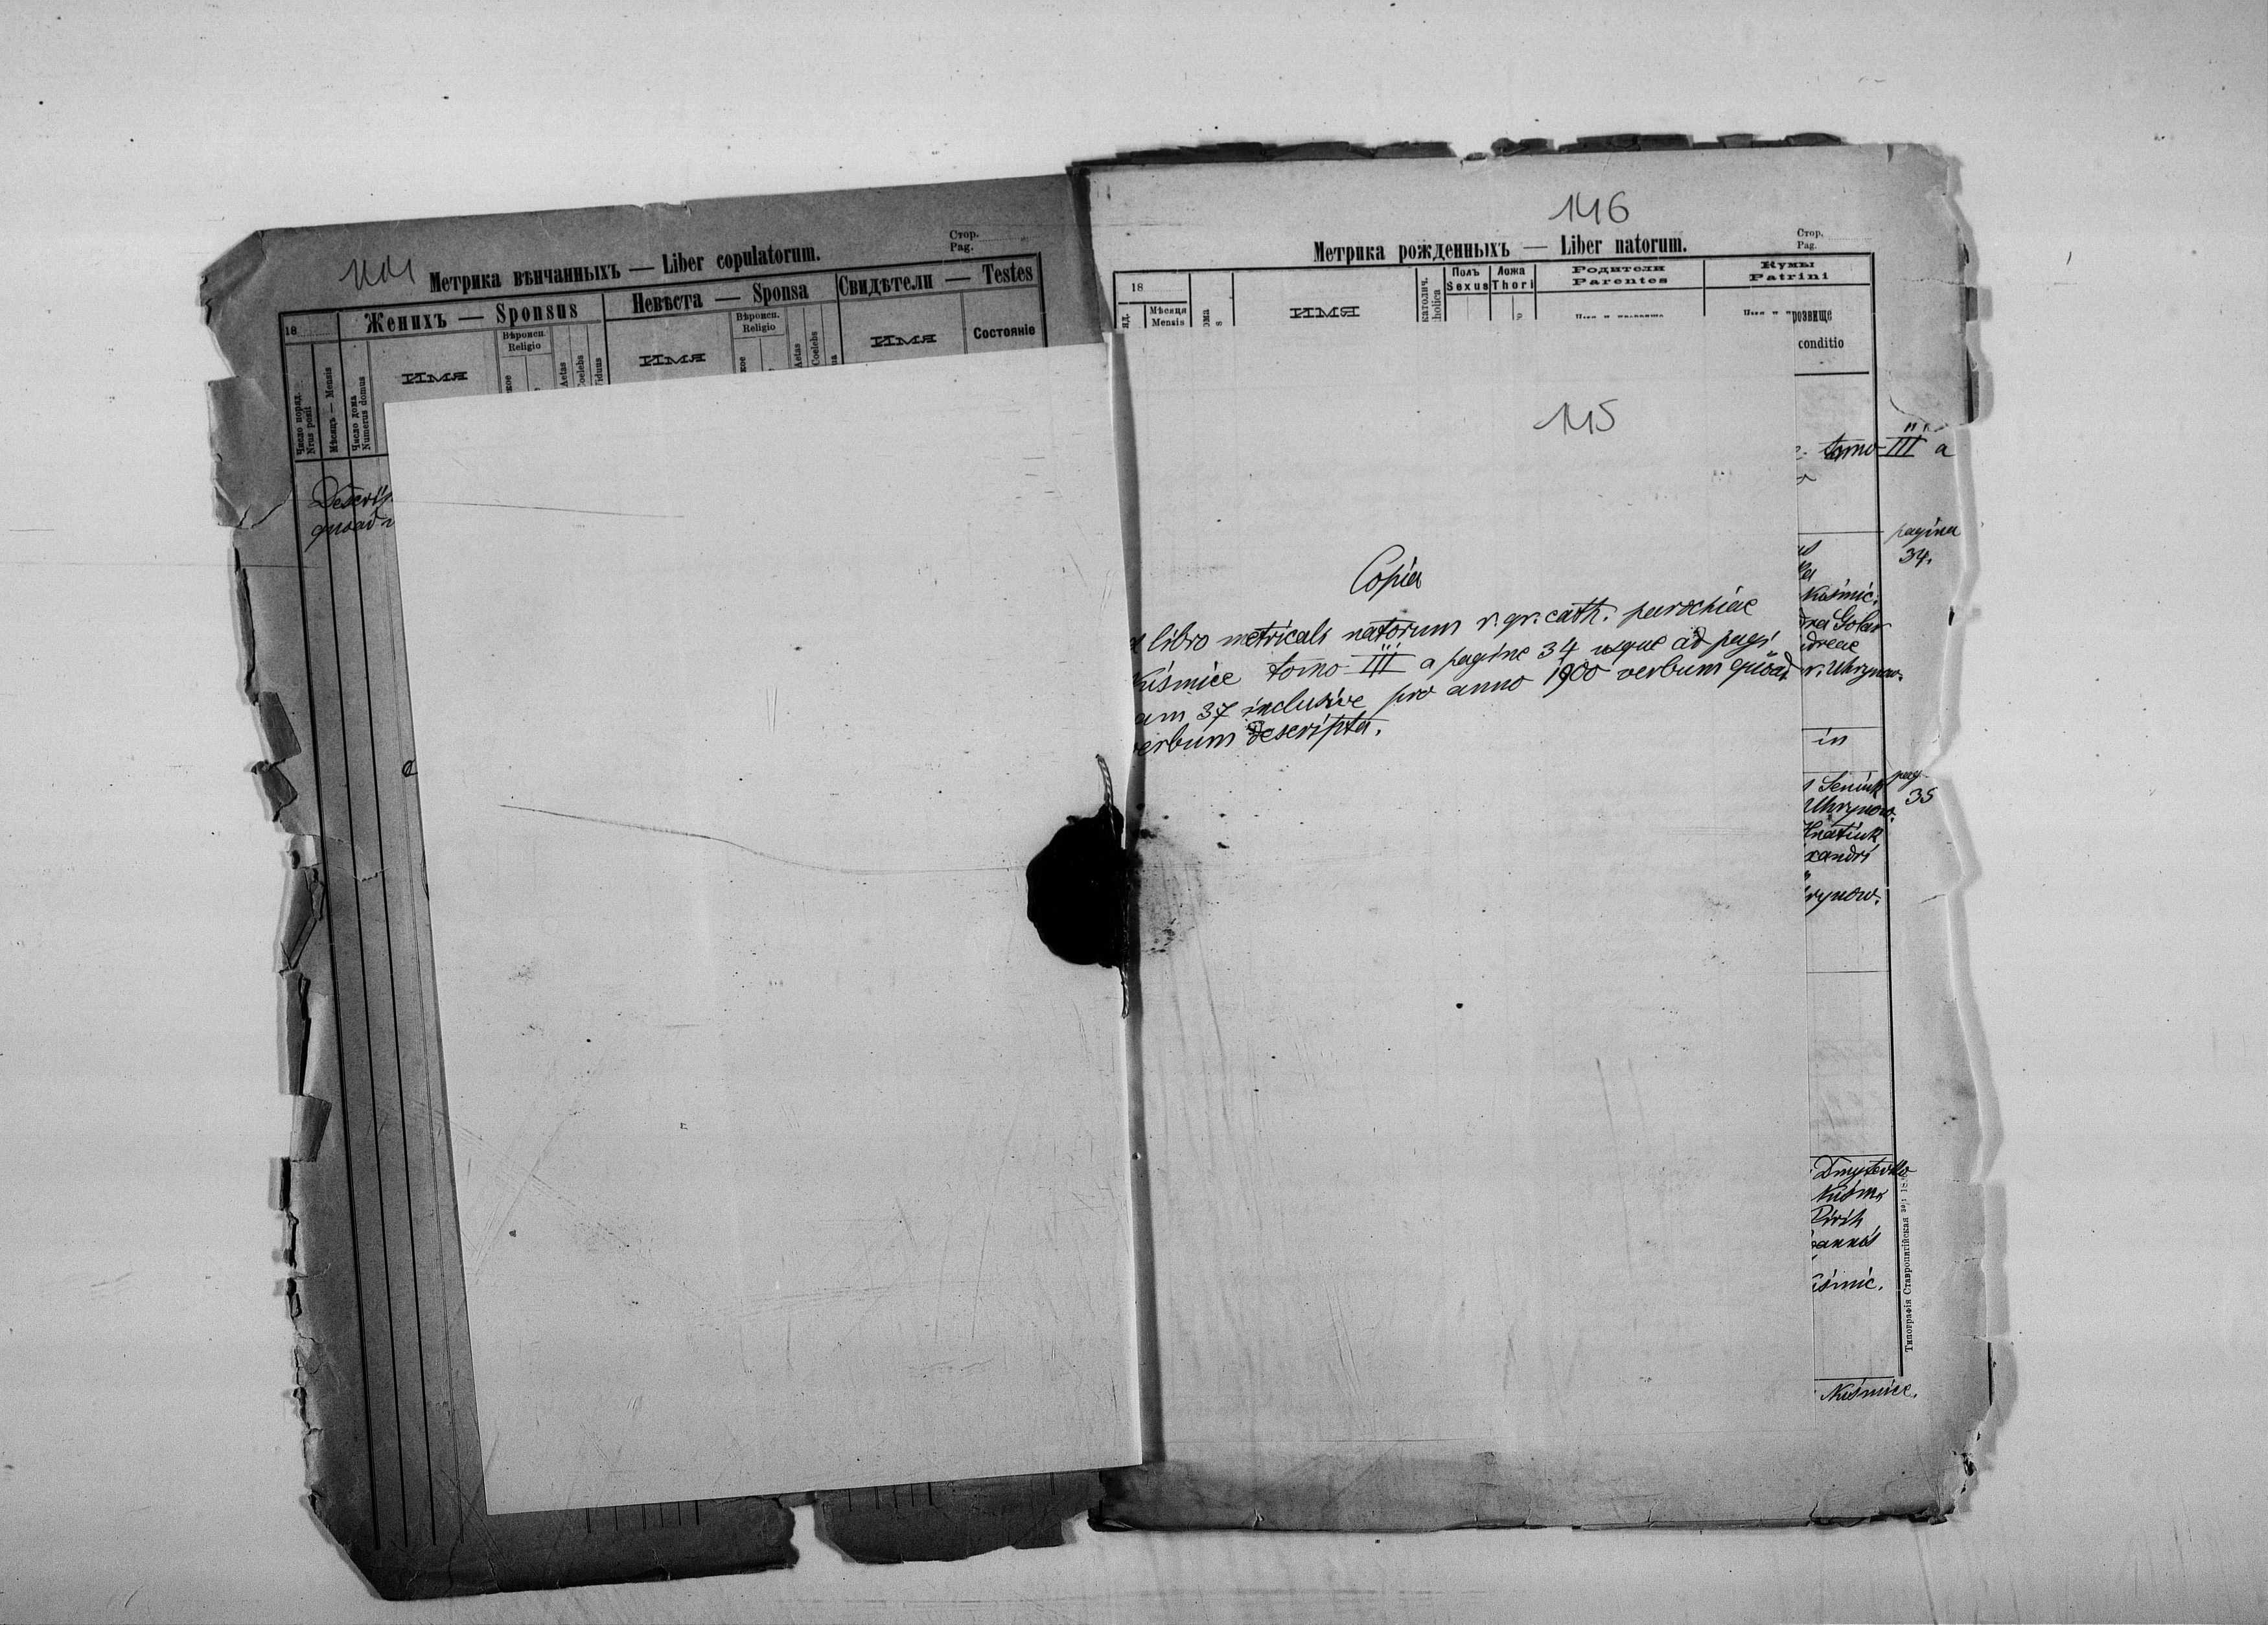 144
Стор.
Pag.
Метрика вѣнчанныхъ — Liber copulatorum.
18
Женихъ — Sponsus
Невѣста — Sponsa
Свидѣтели — Testes
Число поряд.
Nrus posit
Мѣсяцъ — Mensis
Число дома
Numerus domus
Имя
Вѣроисп.
Religio
Aetas
Coelebs
Viduus
Имя
Вѣроисп.
Religio
Aetas
Coelebs
Имя
Состояніе
Descrip
quoad
146
Стор.
Pag.
Метрика рожденныхъ — Liber natorum.
18
Мѣсяця
Mensis
ИМЯ
католич.
tholica
Полъ
Sexus
Ложа
Thori
Родители
Parentes
Кумы
Patrini
розвище
conditio
145
Copia
x libro metricali natorum r. gr. cath. parochiae
Kuśmice tomo III a pagina 34 usque ad pagi
am 37 inclusive pro anno 1900 verbum quoad
verbum descripta.
tomo III a
pagina
34.
Kuśmic.
drea Golar
dreae
r. Uhrynow.
in
pag.
35
Seniuk
Uhrynow.
Hnatiuk
xandri
rynow.
Dmyterko
Kuśm
Pirih
oannis
uśmic.
Типографія Ставропигійская
Kuśmice.